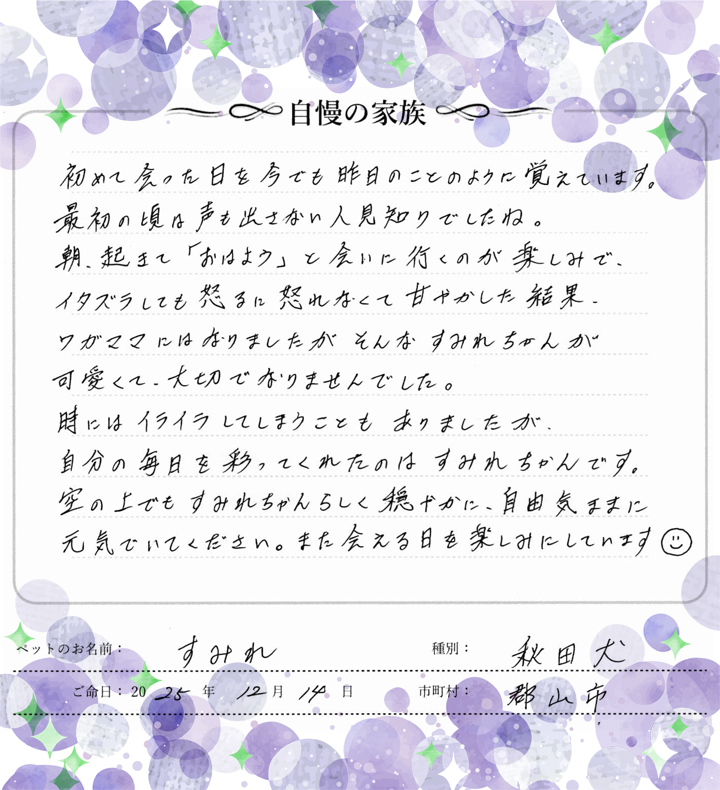 自慢の家族
初めて会った日を今でも昨日のことのように覚えています。
最初の頃は声も出さない人見知りでしたね。
朝、起きて「おはよう」と会いに行くのが楽しみで、
イタズラしても怒るに怒れなくて甘やかした結果、
ワガママにはなりましたが そんな すみれちゃんが
可愛くて、大切でなりませんでした。
時には イライラしてしまうことも ありましたが、
自分の毎日を彩ってくれたのは すみれちゃんです。
空の上でも すみれちゃんらしく穏やかに、自由気ままに
元気でいてください。また会える日を楽しみにしています
ペットのお名前： すみれ 種別： 秋田犬
ご命日： 2025年 12月 14日 市町村： 郡山市